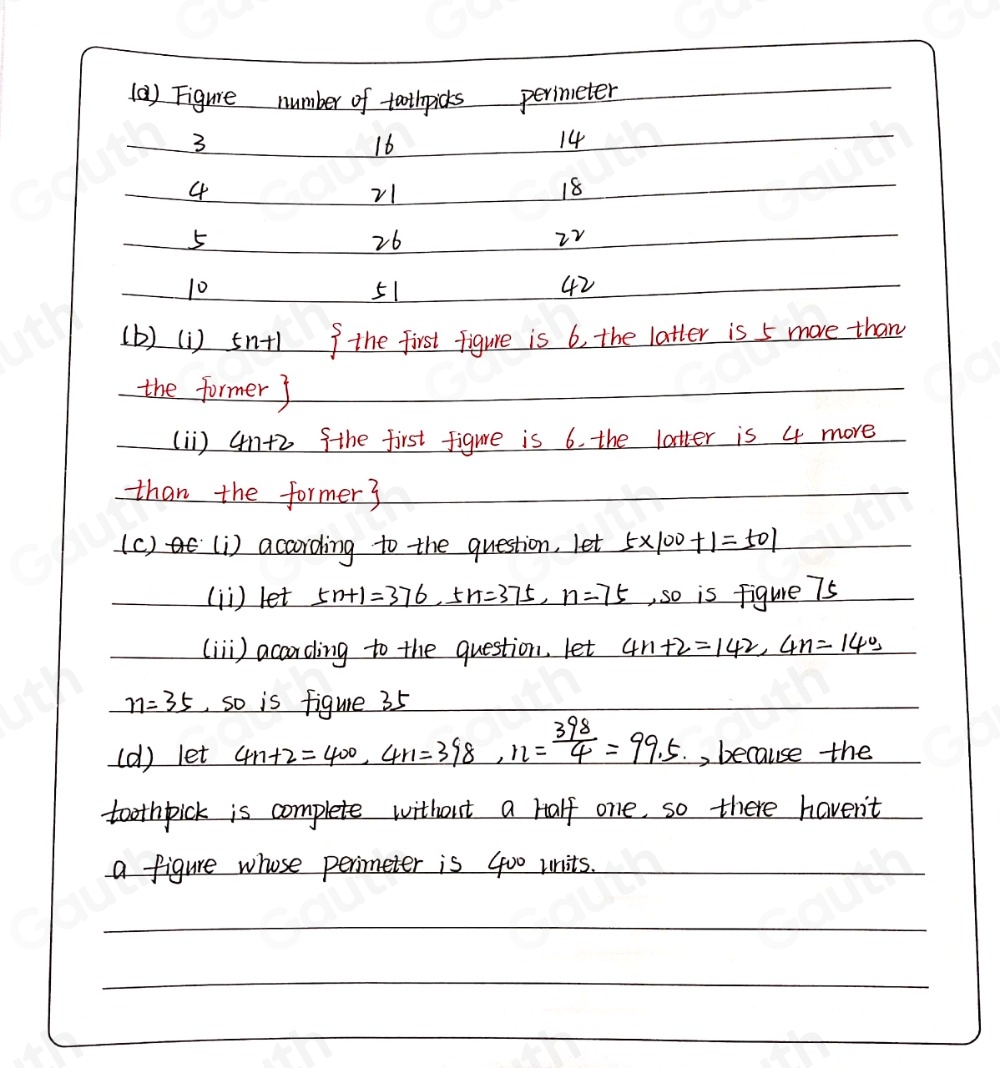 (a) Figure number of toothpicks perimeter
3 16 14
4 21 18
5 26 22
10 51 42
(b) (i) 5n+1 {the first figure is 6, the latter is 5 more than
the former}
(ii) 4n+2 {the first figure is 6. the latter is 4 more
than the former}
(c) (i) according to the question, let 5×100+1=501
(ii) let 5n+1=376, 5n=375, n=75, so is figure 75
(iii) according to the question. let 4n+2=142, 4n=140,
n=35, so is figure 35
(d) let 4n+2=400, 4n=398, n=398/4=99.5., because the
toothpick is complete without a half one, so there haven't
a figure whose perimeter is 400 units.
Gauth